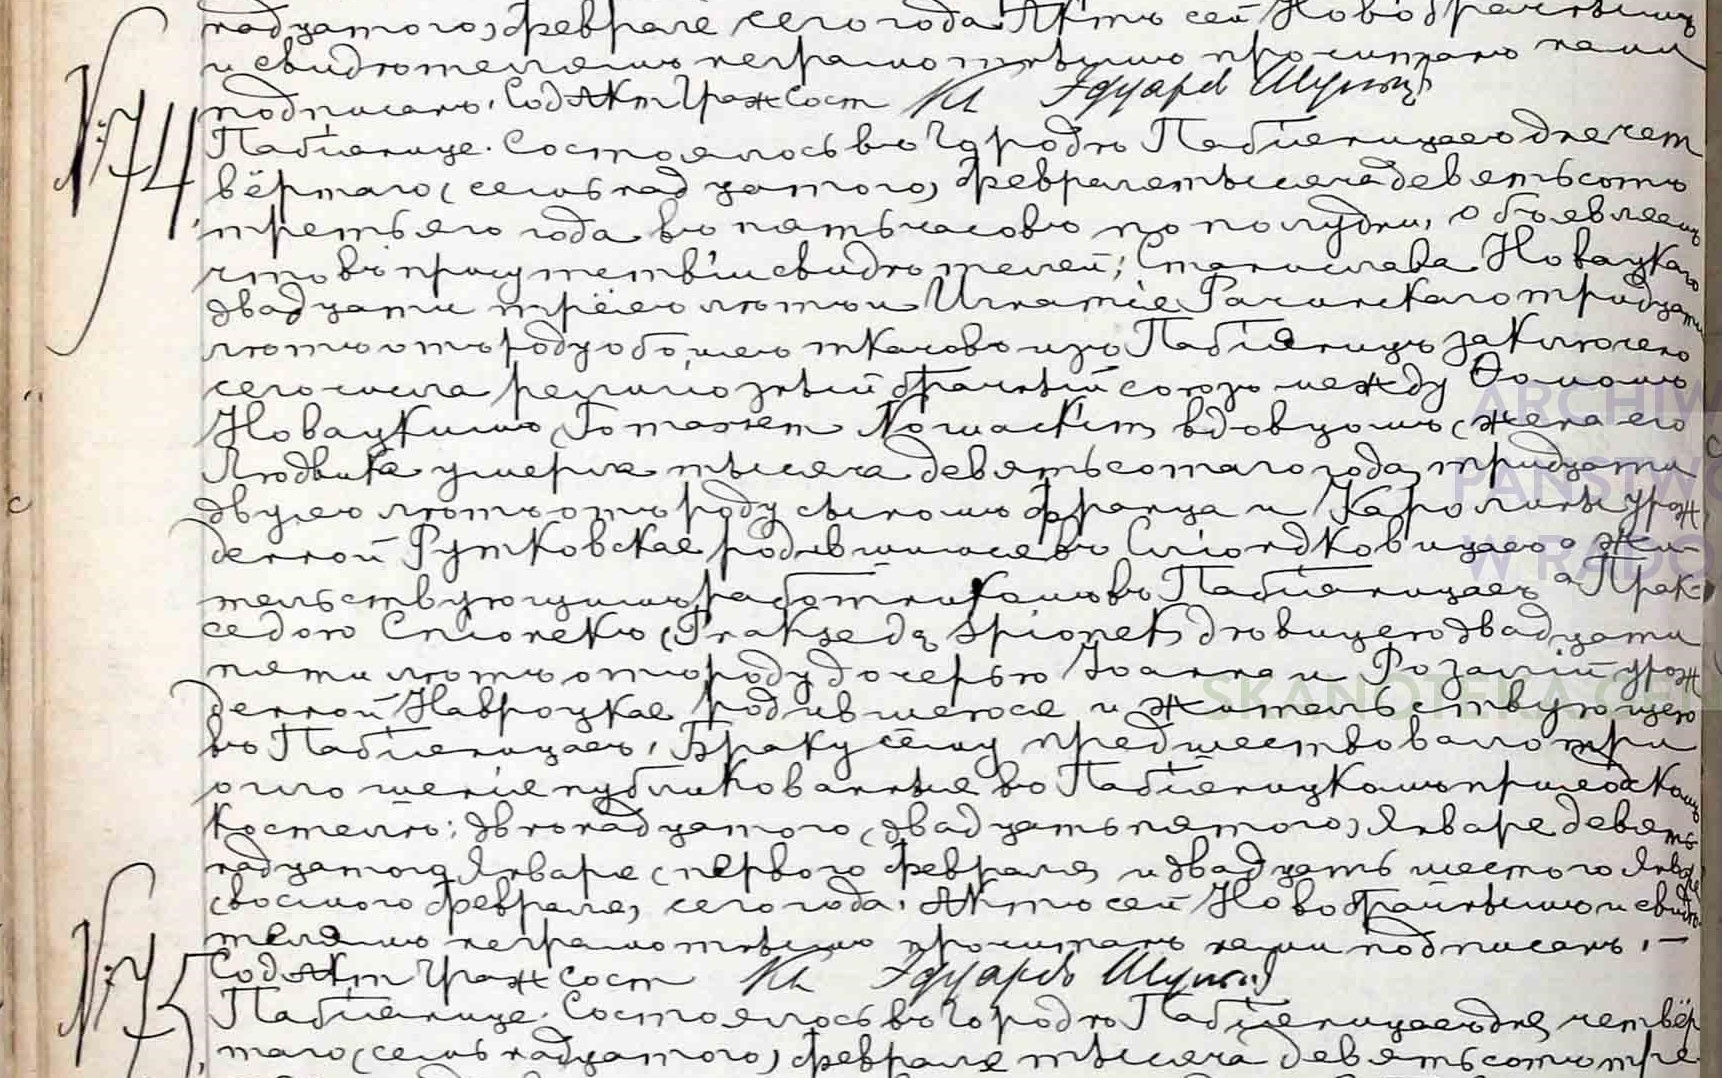 надцатого) февраля сего года. Актъ сей Новобрачнымъ
и свидѣтелямъ неграмотнымъ прочитанъ нами
подписанъ. Сод Акт Граж Сост Кс Эдуардъ Шульцъ
№ 74.
Пабіянице. Состоялось въ Городѣ Пабіяницахъ дня чет
вёртаго (семьнадцатого) февраля тысяча девятьсотъ
третьяго года въ пять часовъ по полудни, объявляемъ
что въ присутствіи свидѣтелей; Станислава Новацкаго
двадцати трёхъ лѣтъ и Игнатія Рачинскаго тридцати
лѣтъ отъ роду обоихъ ткачовъ изъ Пабіяницъ заключенъ
сего числа религіозный брачный союзъ между Ѳомою
Новацкимъ (Tomaszem Nowackim) вдовцомъ (жена его
Людвика умерла тысяча девятьсотаго года) тридцати
двухъ лѣтъ отъ роду сыномъ Франца и Каролины урож
денной Рутковская родившимся въ Спіондковицахъ а жи-
тельствующимъ работникомъ въ Пабіяницахъ а Прак-
седою Спіонекъ (Prakzedą Śpionek) дѣвицею двадцати
пяти лѣтъ отъ роду дочерью Іоанна и Розалій урож
денной Навроцкая родившеюся и жительствующею
въ Пабіяницахъ. Браку сёму предшествовало три
оглошенія публикованныя въ Пабіяницкомъ приходскомъ
костелѣ: двѣнадцатого (двадцать пятого) Января девять
надцатого Января (первого февраля) и двадцать шестого Января
(восмого февраля) сего года. Актъ сей Новобрачнымъ и свидѣ-
телямъ неграмотнымъ прочитанъ нами подписанъ. —
Сод Акт Граж Сост Кс Эдуардъ Шульцъ
№ 75.
Пабіянице. Состоялось въ Городѣ Пабіяницахъ дня четвёр
таго (семьнадцатого) февраля тысяча девятьсотъ тре
ARCHIW
PAŃSTWO
W RADO
SKANOTEKA GE